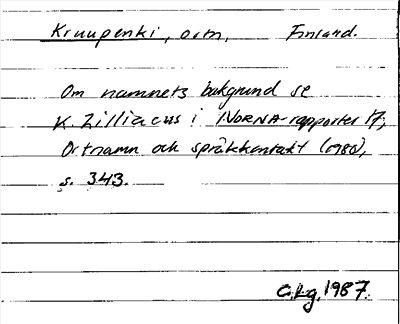 Kruupenki, ortn, Finland.
Om namnets bakgrund se
K. Zilliacus i NORNA-rapporter 17,
Ortnamn och språkkontakt (1980),
s. 343.
C.Lg. 1987.